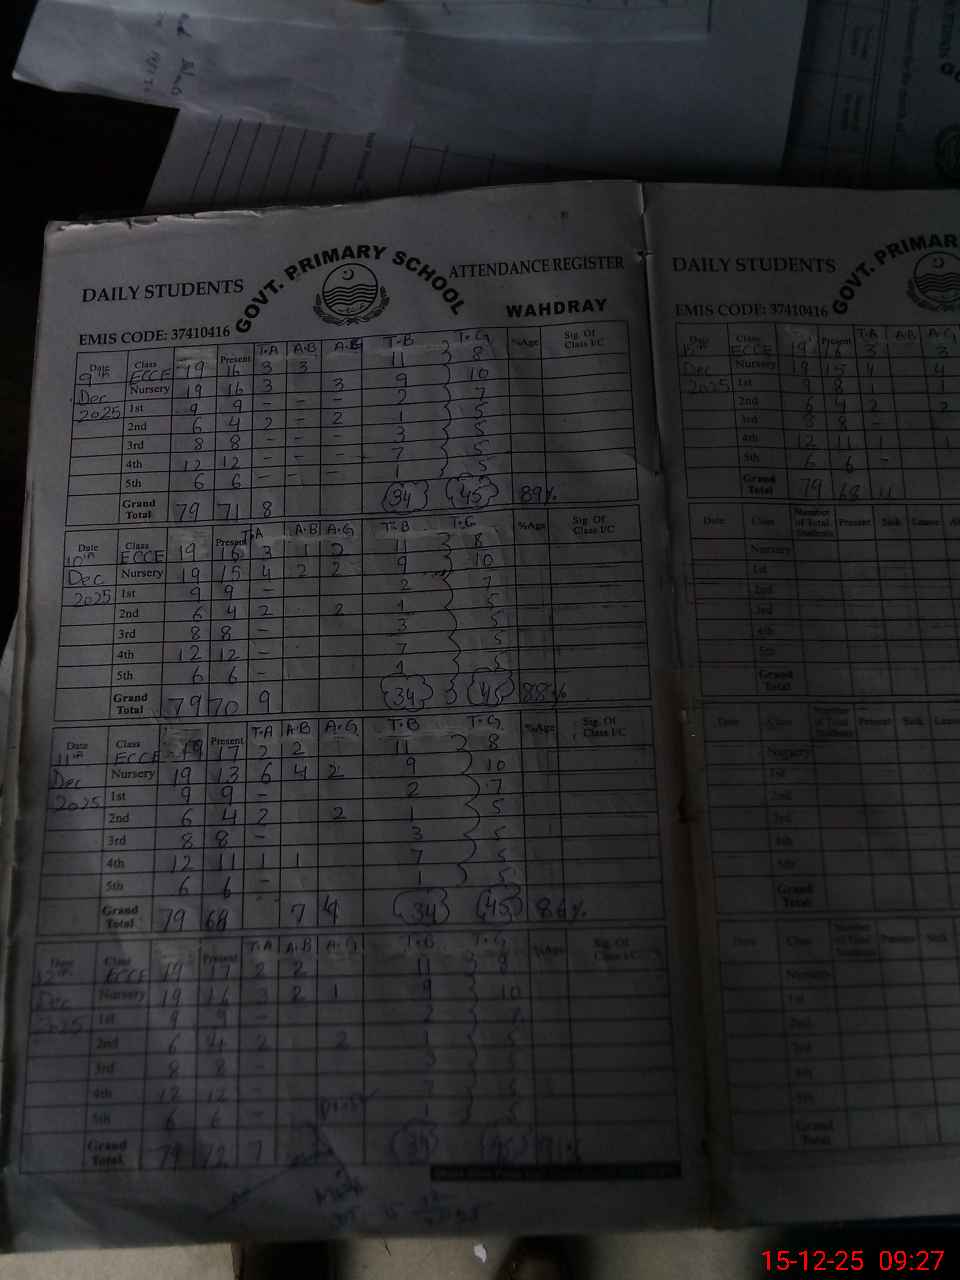 DAILY STUDENTS GOVT. PRIMARY SCHOOL ATTENDANCE REGISTER
EMIS CODE: 37410416 WAHDRAY
Date Class Present T.A A.B A.G T.B T.G %Age Sig. Of Class I/C
9th ECCE 19 16 3 3 11 8
Dec Nursery 19 16 3 3 9 10
2025 1st 9 9 - - - 2 7
2nd 6 4 2 - 2 1 5
3rd 8 8 - - - 3 5
4th 12 12 - - - 7 5
5th 6 6 - - - 1 5
Grand Total 79 71 8 34 45 89%
Date Class Present T.A A.B A.G T.B T.G %Age Sig. Of Class I/C
10th ECCE 19 16 3 1 2 11 8
Dec Nursery 19 15 4 2 2 9 10
2025 1st 9 9 - 2 7
2nd 6 4 2 2 1 5
3rd 8 8 - 3 5
4th 12 12 - 7 5
5th 6 6 - 1 5
Grand Total 79 70 9 34 45 88%
Date Class Present T.A A.B A.G T.B T.G %Age Sig. Of Class I/C
11th ECCE 19 17 2 2 11 8
Dec Nursery 19 13 6 4 2 9 10
2025 1st 9 9 - 2 7
2nd 6 4 2 2 1 5
3rd 8 8 - 3 5
4th 12 11 1 1 7 5
5th 6 6 - 1 5
Grand Total 79 68 7 4 34 45 86%
Date Class Present T.A A.B A.G T.B T.G %Age Sig. Of Class I/C
12th ECCE 19 17 2 2 11 8
Dec Nursery 19 16 3 2 1 9 10
2025 1st 9 9 - 2 7
2nd 6 4 2 2 1 5
3rd 8 8 - 3 5
4th 12 12 - 7 5
5th 6 6 - 1 5
Grand Total 79 72 7 34 45
DAILY STUDENTS GOVT. PRIMAR
EMIS CODE: 37410416
Date Class Present T.A A.B A.G
Dec ECCE 19 16 3 3
2025 Nursery 19 15 4 4
1st 9 8 1 1
2nd 6 4 2 2
3rd 8 8 -
4th 12 11 1 1
5th 6 6 -
Grand Total 79 68 11
Date Class Number of Total Students Present Sick Leave
Nursery
1st
2nd
3rd
4th
5th
Grand Total
Date Class Number of Total Students Present Sick Leave
Nursery
1st
2nd
3rd
4th
5th
Grand Total
Date Class Number of Total Students Present Sick
Nursery
1st
2nd
3rd
4th
5th
Grand Total
15-12-25 09:27